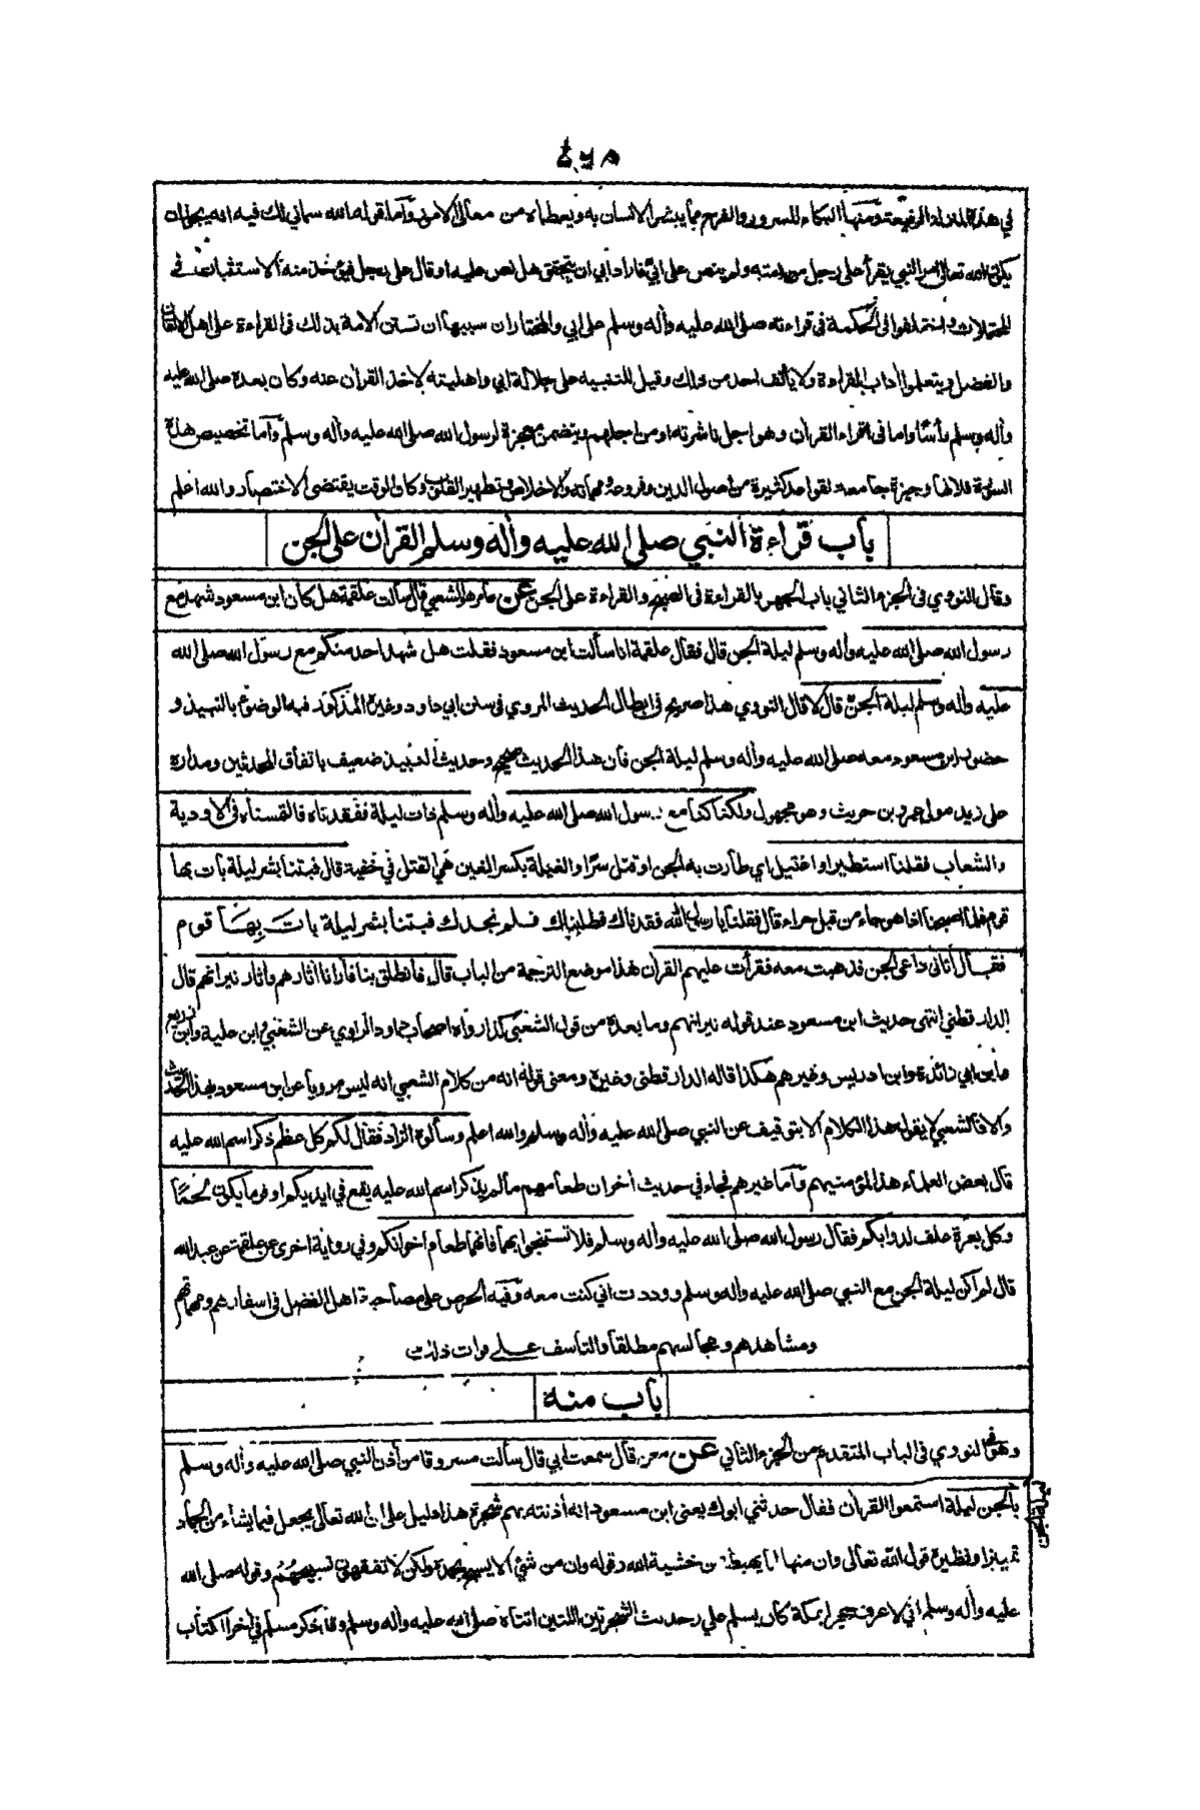 في هذه المنزلة الرفيعة ومنها البكاء للسرور والفرح مما يبشر الانسان به ويعطاه من معالي الامور وأما قوله الله سماني لك فيه انه يجوز ان
يكون الله تعالى امر النبي يقرأ على رجل من امته ولم ينص على أبي فاراد أبي ان يتحقق هل نص عليه او قال على رجل فيؤخذ منه الاستثبات في
المحتملات واختلفوا في الحكمة في قراءته صلى الله عليه وأله وسلم على ابي والمختار ان سببها ان تستن الامة بذلك في القراءة على اهل الاتقان
والفضل ويتعلموا أداب القراءة ولا يأنف احد من ذلك وقيل للتنبيه على جلالة ابي واهليته لاخذ القرأن عنه وكان بعده صلى الله عليه
وأله وسلم رأسا واماما في اقراء القرأن وهو اجل ناشرته او من اجلهم ويتضمن معجزة لرسول الله صلى الله عليه وأله وسلم وأما تخصيص هذه
السورة فلانها وجيزة جامعة لقواعد كثيرة من اصول الدين وفروعه ومهماته والاخلاص وتطهير القلوب وكان الوقت يقتضى الاختصار والله اعلم
باب قراءة النبي صلى الله عليه وأله وسلم القرأن على الجن
وقال النووي في الجزء الثاني باب الجهر بالقراءة في الصبح والقراءة على الجن عن عامر هو الشعبي قال سألت علقمة هل كان ابن مسعود شهد مع
رسول الله صلى الله عليه وأله وسلم ليلة الجن قال فقال علقمة انا سألت ابن مسعود فقلت هل شهد احد منكم مع رسول الله صلى الله
عليه وأله وسلم ليلة الجن قال لا قال النووي هذا صريح في ابطال الحديث المروي في سنن ابي داود وغيره المذكور فيه الوضوء بالنبيذ و
حضور ابن مسعود معه صلى الله عليه وأله وسلم ليلة الجن فان هذا الحديث صحيح وحديث النبيذ ضعيف باتفاق المحدثين ومداره
على زيد مولى عمرو بن حريث وهو مجهول ولكنا كنا مع رسول الله صلى الله عليه وأله وسلم ذات ليلة ففقدناه فالتمسناه في الاودية
والشعاب فقلنا استطير او اغتيل اي طارت به الجن او قتل سرا والغيلة بكسر الغين هي القتل في خفية قال فبتنا بشر ليلة بات بها
قوم فلما اصبحنا اذا هو جاء من قبل حراء قال فقلنا يا رسول الله فقدناك فطلبناك فلم نجدك فبتنا بشر ليلة بات بها قوم
فقال أتاني داعي الجن فذهبت معه فقرأت عليهم القرأن هذا موضع الترجمة من الباب قال فانطلق بنا فأرانا أثارهم وأثار نيرانهم قال
الدارقطني انتهى حديث ابن مسعود عند قوله نيرانهم وما بعده من قول الشعبي كذا رواه اصحاب داود الراوي عن الشعبي وابن علية وابن زريع
وابن ابي زائدة وابن ادريس وغيرهم هكذا قاله الدارقطني وغيره ومعنى قوله انه من كلام الشعبي انه ليس مرويا عن ابن مسعود بهذا الحديث
والا فالشعبي لا يقول هذا الكلام الا بتوقيف عن النبي صلى الله عليه وأله وسلم والله اعلم وسألوه الزاد فقال لكم كل عظم ذكر اسم الله عليه
قال بعض العلماء هذا لمؤمنيهم وأما غيرهم فجاء في حديث أخر ان طعامهم ما لم يذكر اسم الله عليه يقع في ايديكم اوفر ما يكون لحما
وكل بعرة علف لدوابكم فقال رسول الله صلى الله عليه وأله وسلم فلا تستنجوا بهما فانهما طعام اخوانكم وفي رواية اخرى عن علقمة عن عبد الله
قال لم اكن ليلة الجن مع النبي صلى الله عليه وأله وسلم ووددت اني كنت معه وفيه الحرص على مصاحبة اهل الفضل في اسفارهم ومهماتهم
ومشاهدهم ومجالسهم مطلقا والتأسف على فوات ذلك
باب منه
وهو في النووي في الباب المتقدم من الجزء الثاني عن معن قال سمعت ابي قال سألت مسروقا من أذن النبي صلى الله عليه وأله وسلم
بالجن ليلة استمعوا القرأن فقال حدثني ابوك يعني ابن مسعود انه أذنته بهم شجرة هذا دليل على ان الله تعالى يجعل فيما يشاء من الجماد
تمييزا ونظيره قول الله تعالى وان منها لما يهبط من خشية الله وقوله وان من شئ الا يسبح بحمده ولكن لا تفقهون تسبيحهم وقوله صلى الله
عليه وأله وسلم اني لاعرف حجرا بمكة كان يسلم علي وحديث الشجرتين اللتين اتتاه صلى الله عليه وأله وسلم وقد ذكر مسلم في أخر الكتاب